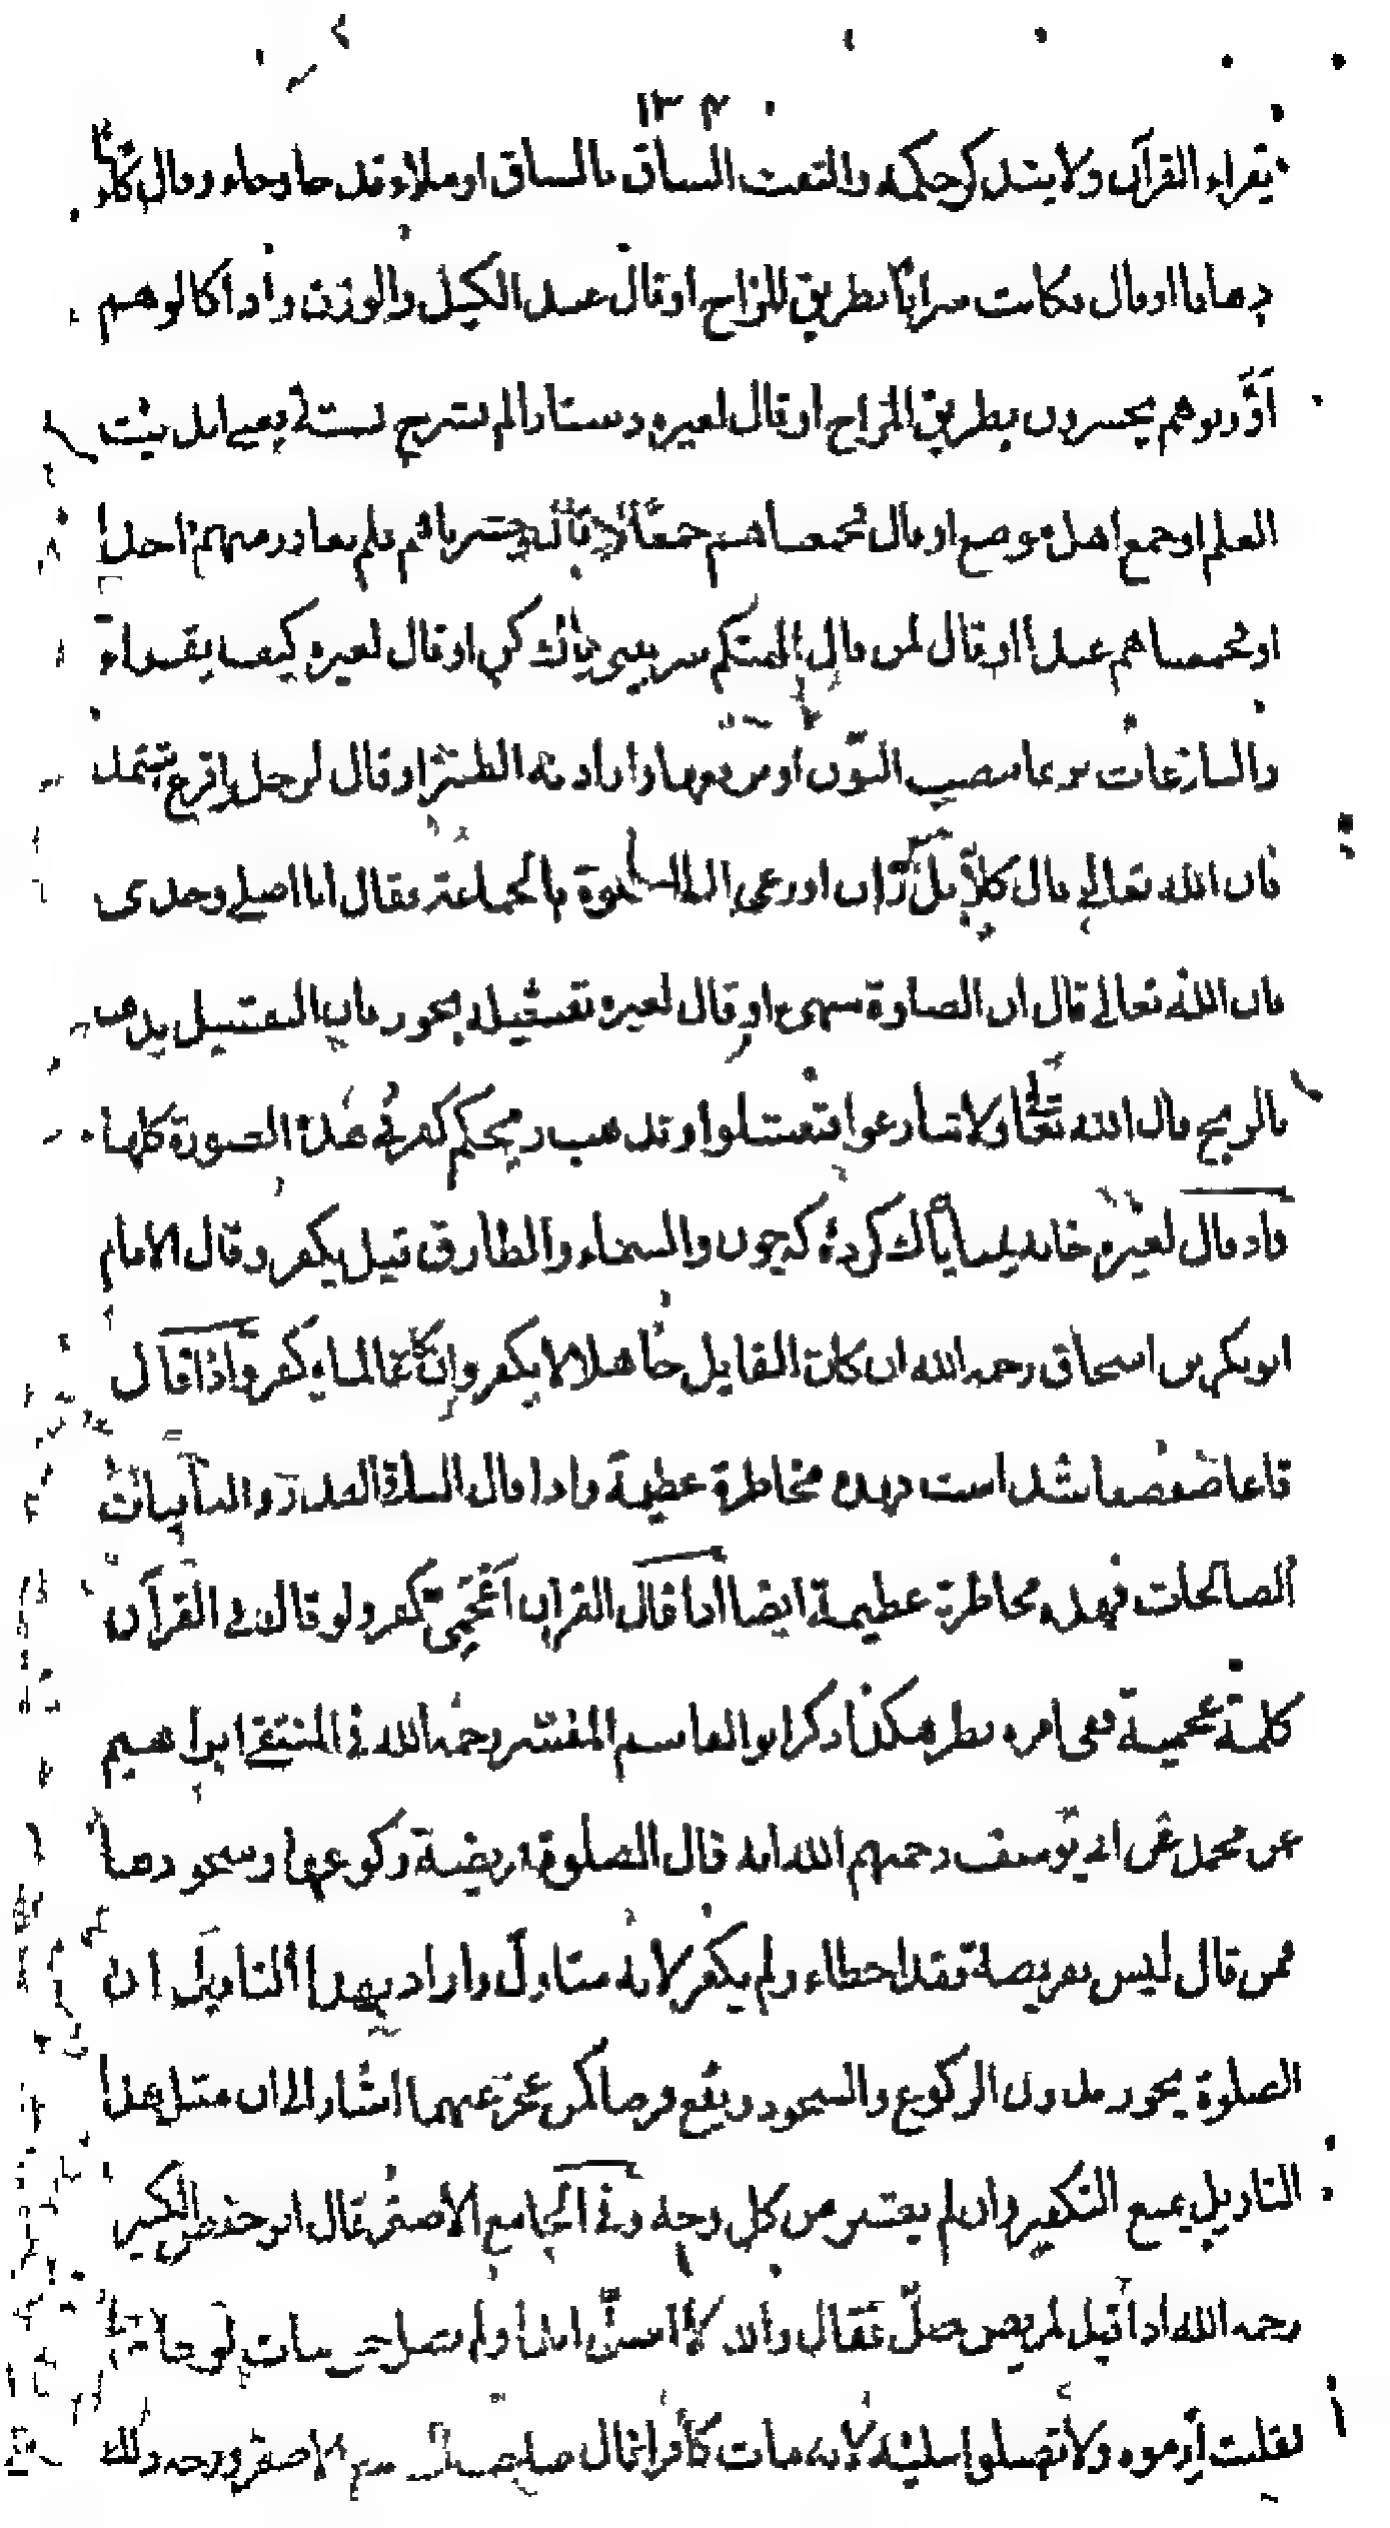 ١٣٤
يقراء القرآن ولا يتذكر حكمه والتفت الساق بالساق او ملاء قدحا وجاء وقال كاسا
دهاقا او قال فكانت سرابا بطريق المزاح او قال عند الكيل والوزن واذا كالوهم
أو وزنوهم يخسرون بطريق المزاح او قال لغيره دستار الم نشرح بستة يعني ابديت
العلم او جمع اهل موضع او قال فجمعناهم جمعا او قال وحشرناهم فلم نغادر منهم احدا
او فجمعناهم عندنا او قال لمن قال او قال لغيره كيف يقراء
والنازعات نزعا بنصب النون او برفعها واراد به الطنز او قال لرجل اقرع
فان الله تعالى قال كلا بل ران او دعي الى الصلوة بالجماعة فقال انا اصلي وحدي
فان الله تعالى قال ان الصلوة تنهى او قال لغيره تفشيله بخور فان التفشيل يذهب
بالريح قال الله تعالى ولا تنازعوا فتفشلوا وتذهب ريحكم كفر في هذه الصورة كلها
واذ قال لغيره خانه چنان پاک کرده که چون والسماء والطارق قيل يكفر وقال الامام
ابو بكر بن اسحاق رحمه الله ان كان القايل جاهلا لا يكفر وان كان عالما يكفر واذا قال
قاعا صفصفا شد است فهذه مخاطرة عظيمة واذا قال القدر والباقيات
الصالحات فهذه مخاطرة عظيمة ايضا اذا قال القرآن اعجمي كفر ولو قال في القرآن
كلمة عجمية ففي امره نظر هكذا ذكر ابو القاسم المفسر رحمه الله في المنتقى ابراهيم
عن محمد عن ابي يوسف رحمهم الله انه قال الصلوة فريضة ركوعها وسجودها
فمن قال ليس بفريضة فقد اخطاء ولم يكفر لانه متاول واراد بهذا التاويل ان
الصلوة يجوز بدون الركوع والسجود ويقع فرضا لمن عجز عنهما اشار الى ان مثل هذا
التاويل يمنع التكفير وان لم يعتبر من كل وجه وفي الجامع الاصغر قال ابو حفص الكبير
رحمه الله اذا قيل لمريض صل فقال والله لا اصلي ابدا ولم يصل حتى مات
لقلت ارموه ولا تصلوا عليه لانه مات كافرا قال صاحب الجامع الاصغر ووجه ذلك